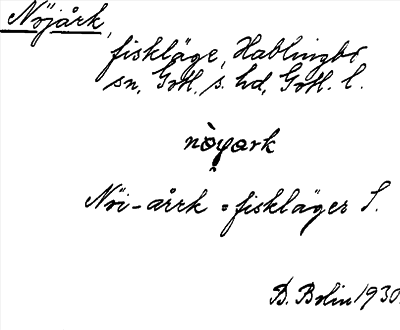 Nöjårk,
fiskläge, Hablingbo
sn, Gotl. s. hd, Gotl. l.
nòyark
Nöi-årrk = fiskläger S.
D. Bolin 1930.